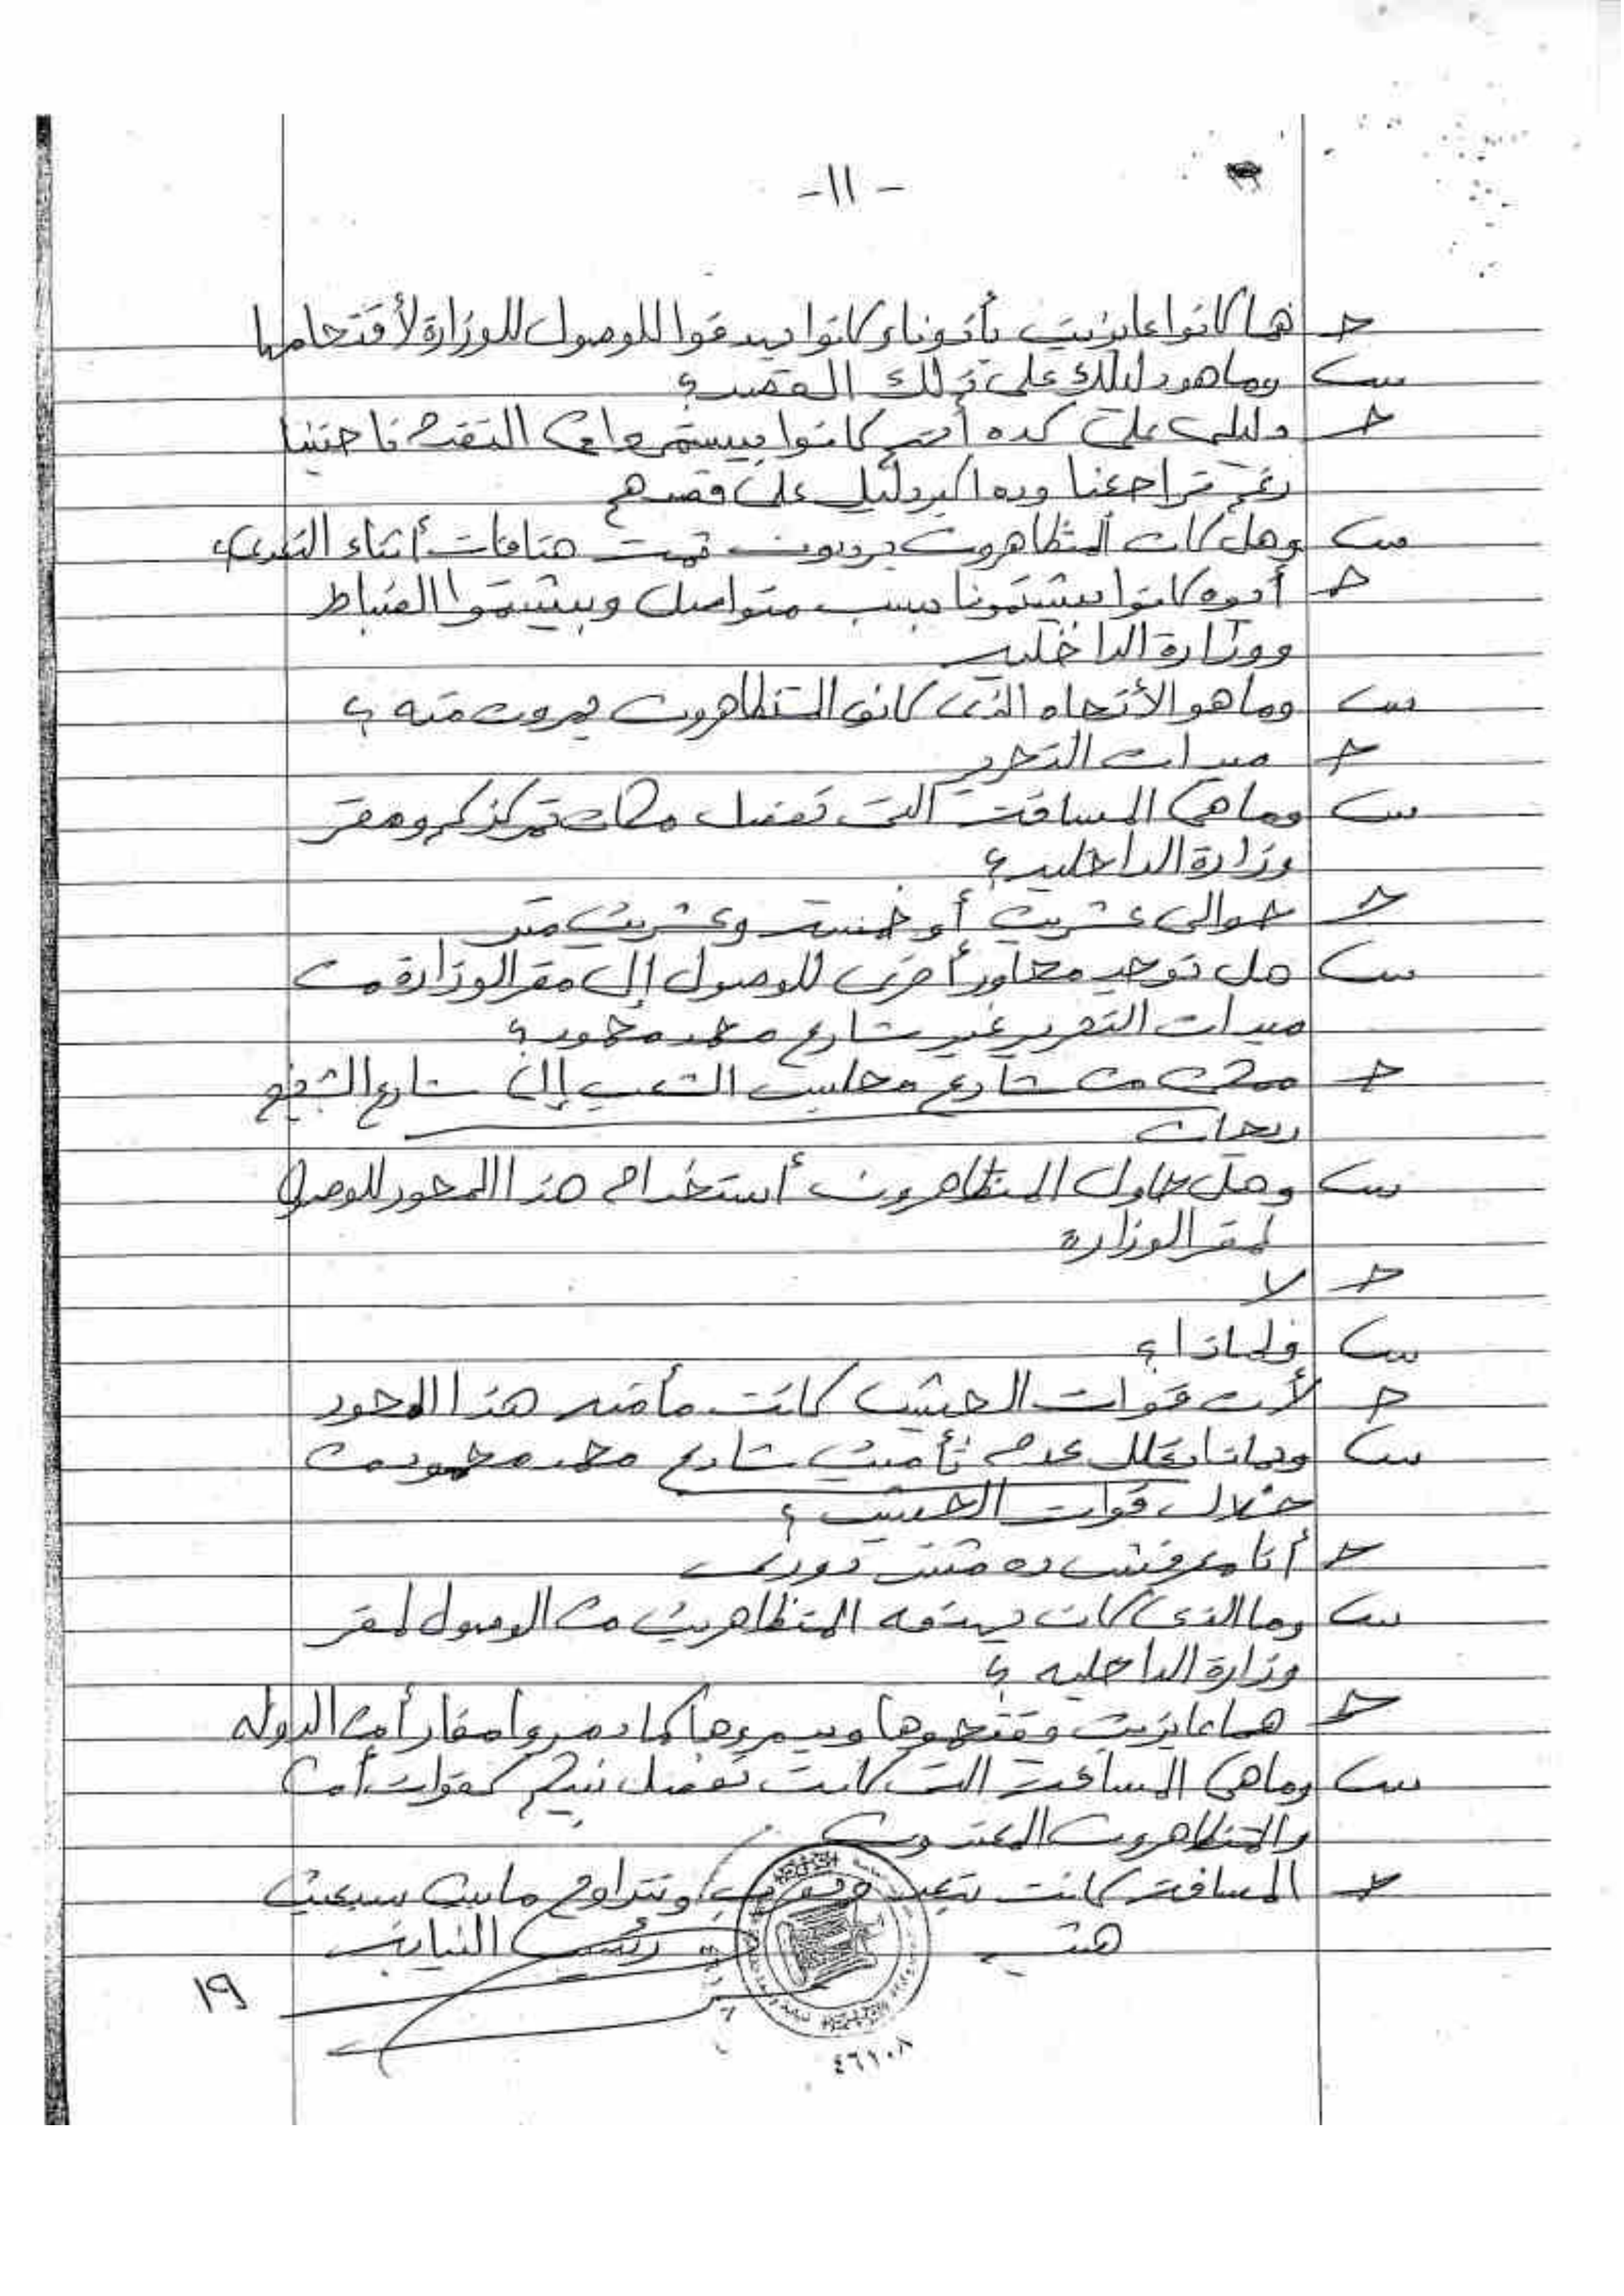 - ١١ -
ج هما كانوا عايزين يأذونا وكانوا بيهدفوا للوصول للوزارة لأقتحامها
س وما هو دليلك على ذلك القصد؟
ج دليلى على كده أنهم كانوا بيستمروا فى التقدم ناحيتنا
رغم تراجعنا وده اكبر دليل على قصدهم
س وهل كان المتظاهرون يرددون ثمت هتافات أثناء التعدى؟
ج أيوه كانوا بيشتمونا بسب متواصل وبيشتموا الضباط
ووزارة الداخليه
س وما هو الأتجاه الذى كان المتظاهرون يمرون منه؟
ج ميدان التحرير
س وما هى المسافة التى تفصل مكان تمركزكم ومقر
وزارة الداخليه؟
ج حوالى عشرين أو خمسة وعشرين متر
س هل توجد محاور أخرى للوصول إلى مقر الوزارة من
ميدان التحرير غير شارع محمد محمود؟
ج ممكن من شارع مجلس الشعب إلى شارع الشيخ
ريحان
س وهل حاول المتظاهرون أستخدام هذا المحور للوصول
لمقر الوزارة
ج لا
س ولماذا؟
ج لأن قوات الجيش كانت مأمنه هذا المحور
س وبماذا تعلل عدم تأمين شارع محمد محمود من
خلال قوات الجيش؟
ج أنا معرفش ده مش دورى
س وما الذى كان يهدفه المتظاهرين من الوصول لمقر
وزارة الداخليه؟
ج هما عايزين يقتحموها ويدمروها كما دمروا مقار أمن الدوله
س وما هى المسافة التى كانت تفصل بينكم كقوات أمن
والمتظاهرون المعتدون
ج المسافة كانت بتبعد وبتقرب وتتراوح مابين سبعين
رئيس النيابة
١٩
٤٦٢٠٨